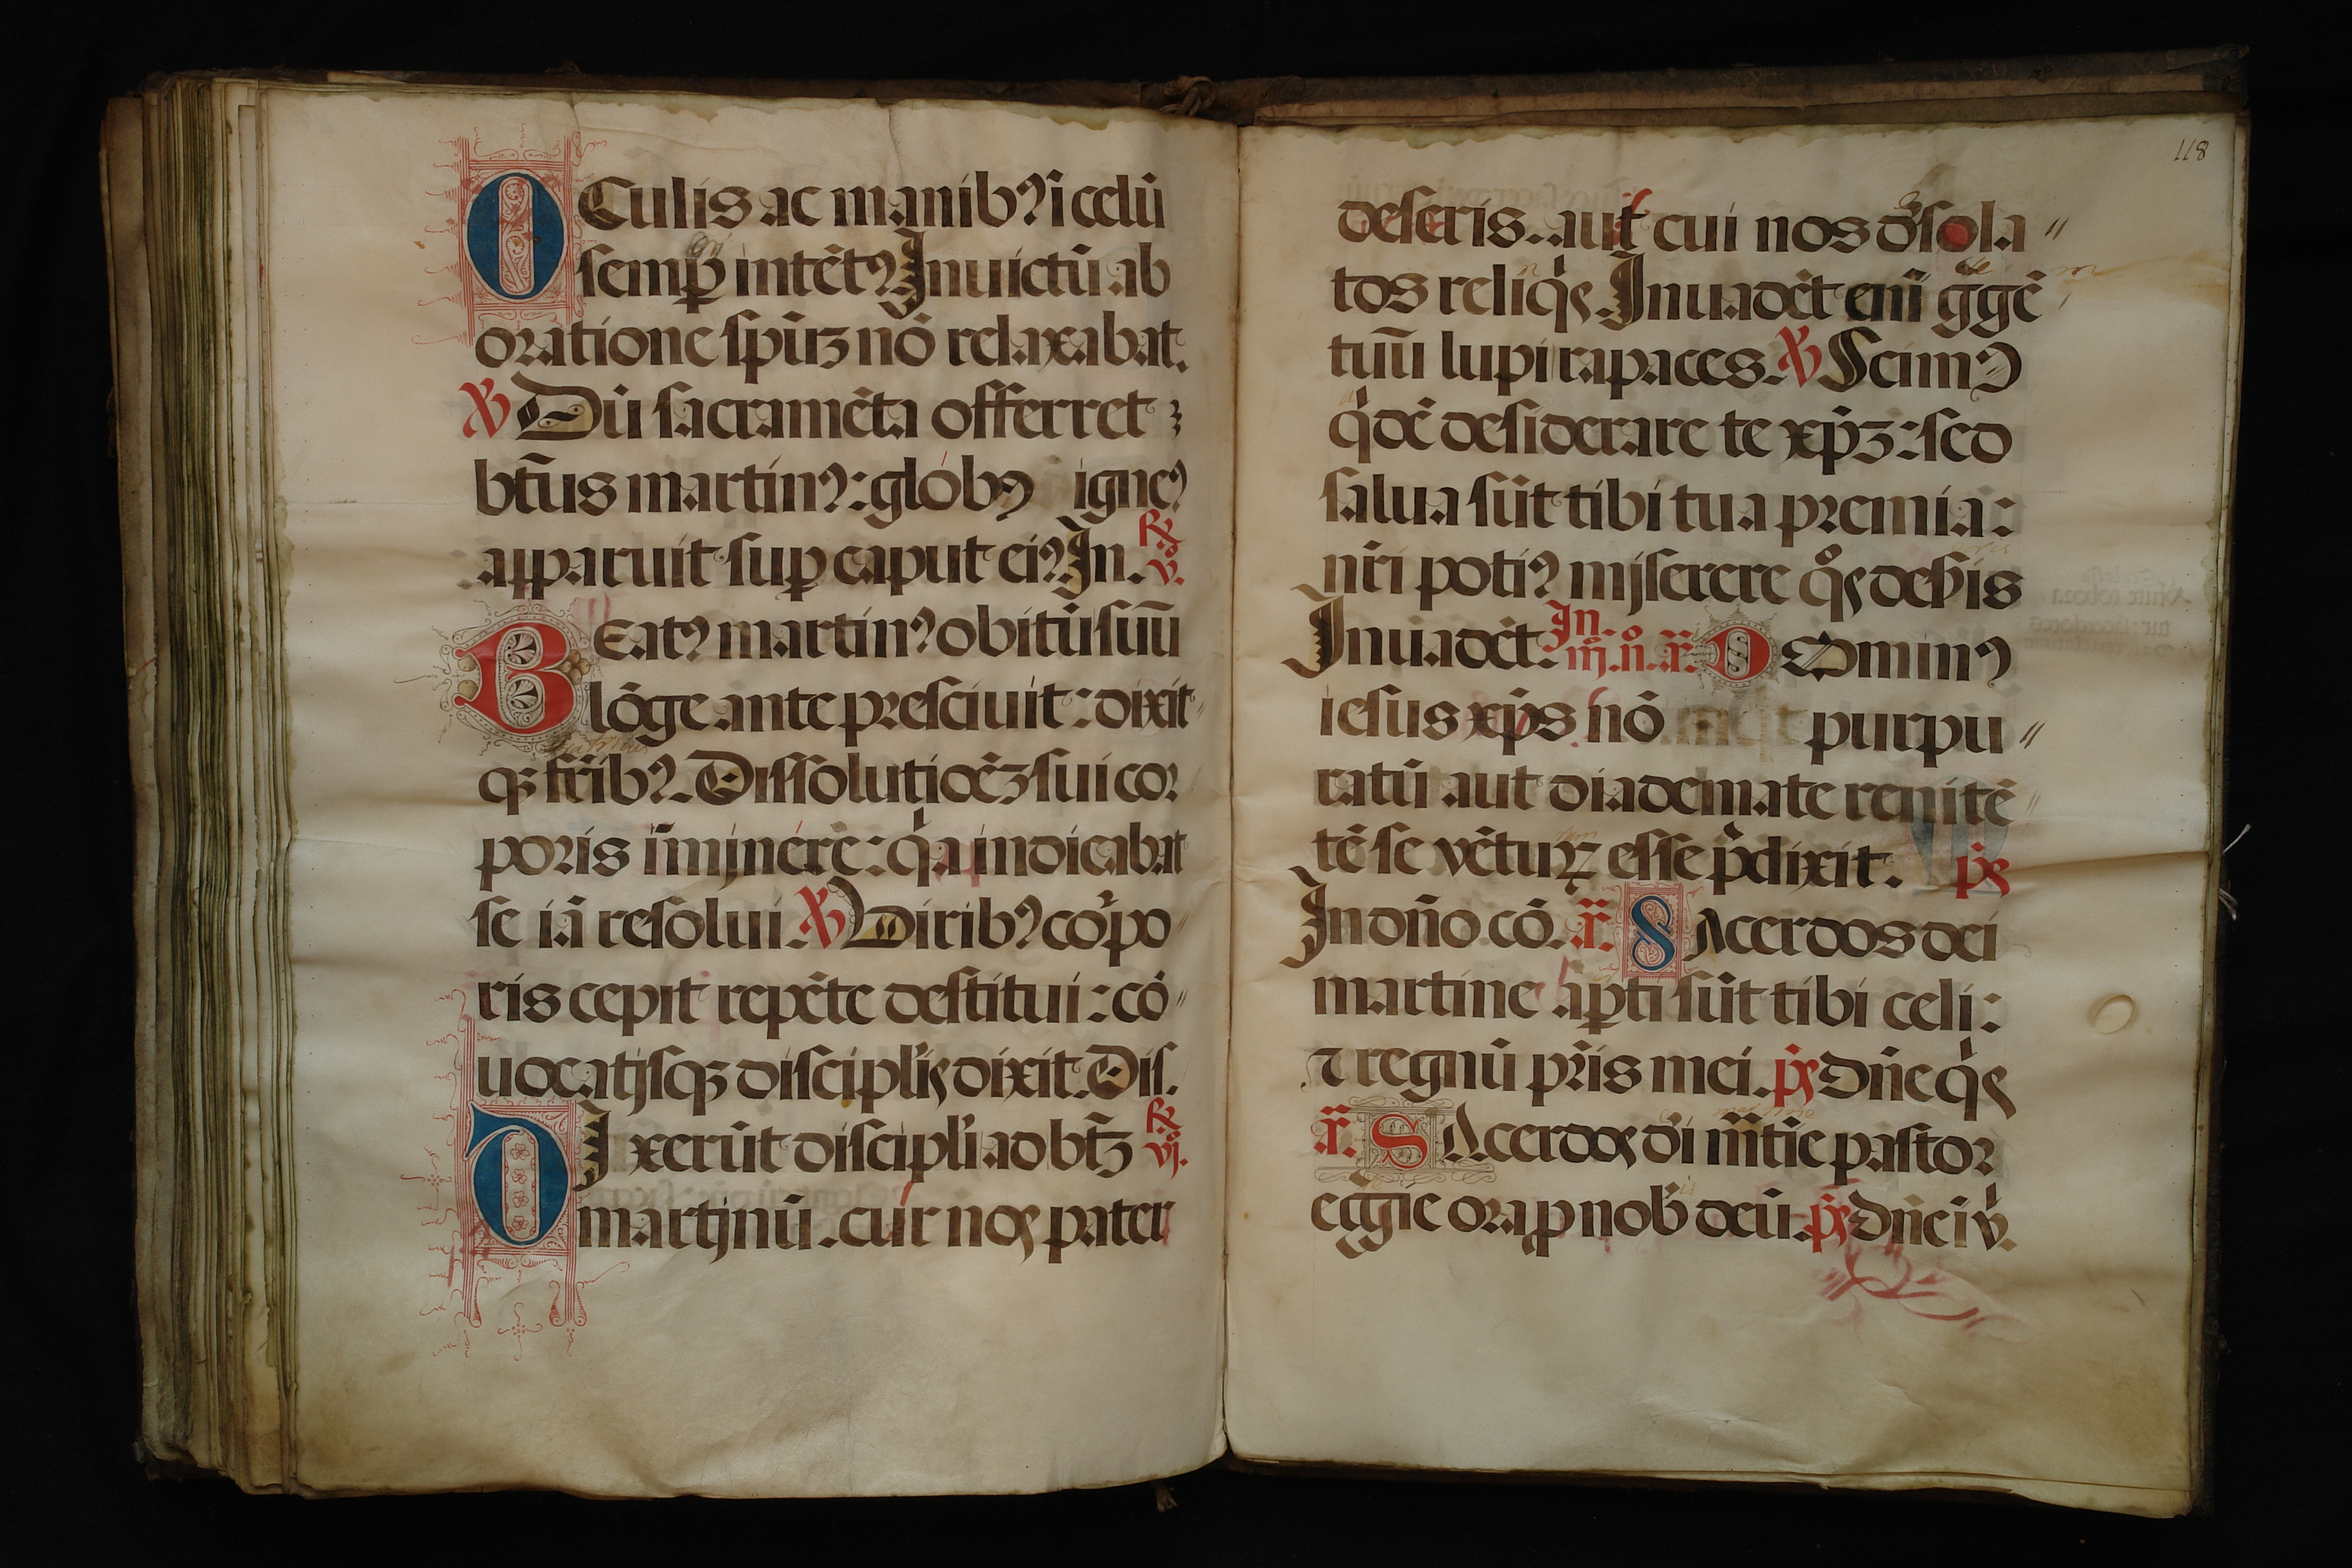 OCulis ac manibꝰ ī celū
semꝑ intētꝰ Inuictū ab
oratione sp̄uꝫ nō relaxabat.
℣ Dū sacramēta offerret
bt̄us martinꝰ: globꝰ igneꝰ
apparuit suꝑ caput eiꝰ In.
℟ v.
BEatꝰ martinꝰ obitū suū
lōge ante presciuit: dixit
qꝫ fr̄ibꝰ. Dissolutiōeꝫ sui coꝛ
poris īmjnere: qͥa indicabat
se iā resolui. ℣ Viribꝰ corpo
ris cepit repēte destitui: cō
uocatjsqꝫ discipl̉is dixit. Dis.
DIxerūt discipl̉i ad bt̄ꝫ
℟ vj.
martjnū. cur nos pater
118
deseris. aut cui nos d̉sola
tos relīqͥs. Inuadēt enī g̉gē
tuū lupi rapaces. ℣ Scimꝰ
qͥdē desiderare te xp̄ꝫ: sed
salua sūt tibi tua premia:
nr̄i potiꝰ mjserere qͦs deb̉is
Inuadēt. In. iij. n. a. DOminꝰ
iesus xp̄s nō purpu
ratū aut diademate renitē
tē se vētuꝝ esse p̄dixit. p̄s
In dn̄o cō. a. SAcerdos dei
martine aꝑti sūt tibi celi:
⁊ regnū pr̄is mei. p̄s Dn̄e qͥs
a. SAcerdos d̉i m̄tīe pastoꝛ
eggie ora ꝓ nob̉ deū. p̄s Dn̄e iͥv.